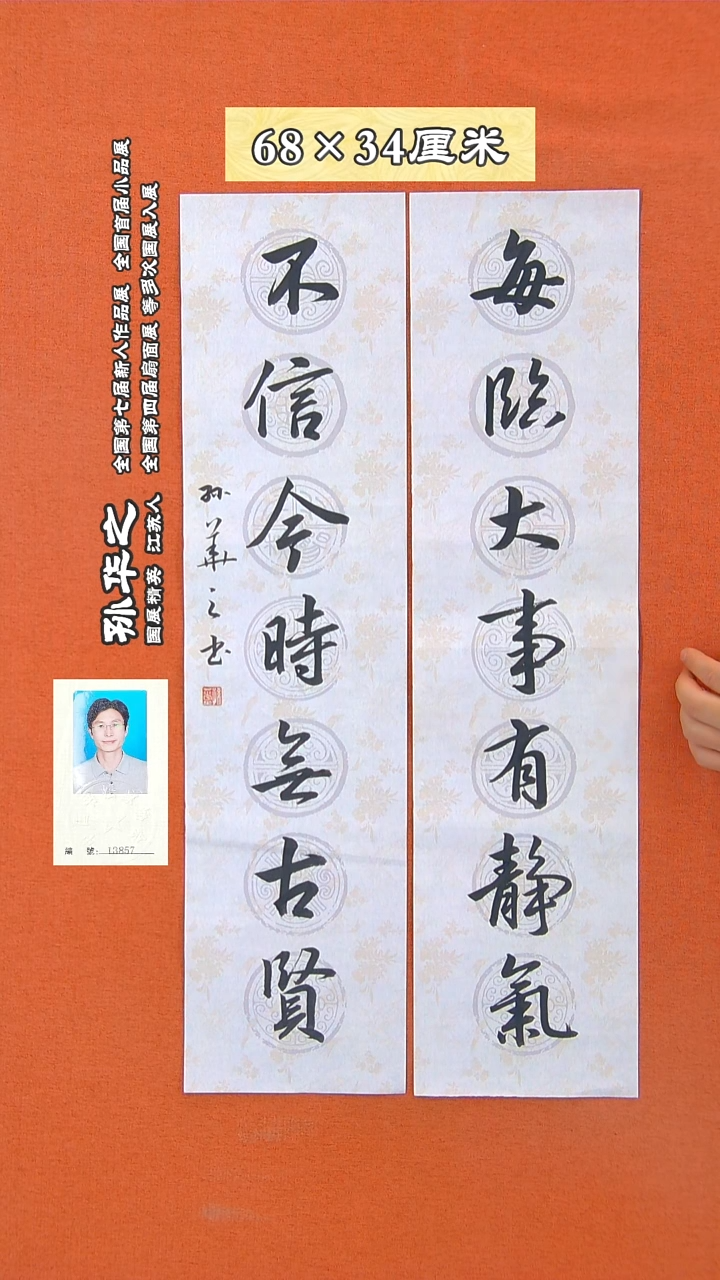 68×34厘米
每臨大事有靜氣
不信今時無古賢
孙華之书
孙华之
国展精英 江苏人
全国第七届新人作品展 全国首届小品展
全国第四届扇面展 等多次国展入展
編 號: 13857